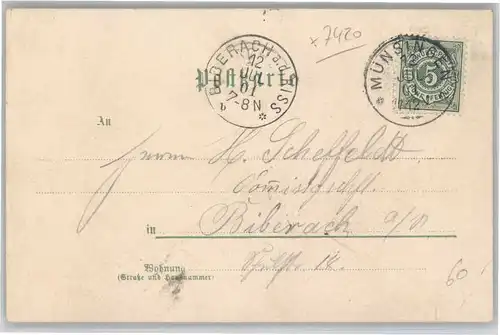 x 7420
BIBERACH a.d. RISS
12
JUL
01
7-8 N
b
*
Postkarte
* MÜNSINGEN
12
JUL
5
An
Herrn H. Scheffeldt
in Biberach a/R
Wohnung
(Straße und Hausnummer)
60